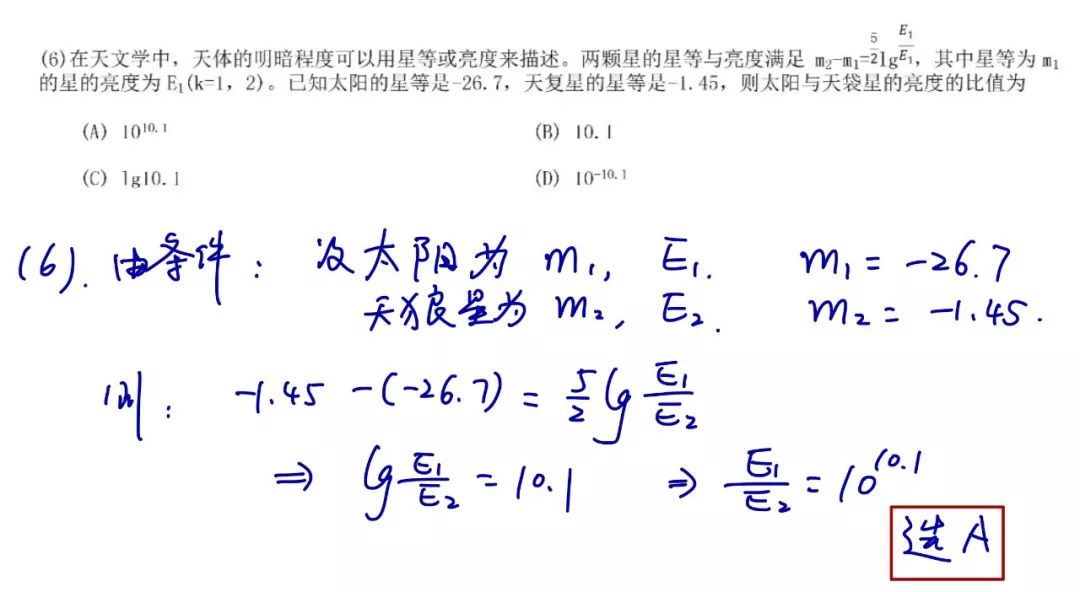 (6)在天文学中，天体的明暗程度可以用星等或亮度来描述。两颗星的星等与亮度满足 m₂-m₁=5/2 lg E₁/E₁，其中星等为 m₁
的星的亮度为 E₁(k=1, 2)。已知太阳的星等是-26.7，天复星的星等是-1.45，则太阳与天袋星的亮度的比值为
(A) 10^10.1 (B) 10.1
(C) lg10.1 (D) 10^-10.1
(6). 由条件: 设太阳为 m₁, E₁. m₁ = -26.7
天狼星为 m₂, E₂. m₂ = -1.45.
则: -1.45 -(-26.7) = 5/2 lg E₁/E₂
⇒ lg E₁/E₂ = 10.1 ⇒ E₁/E₂ = 10^10.1
选 A